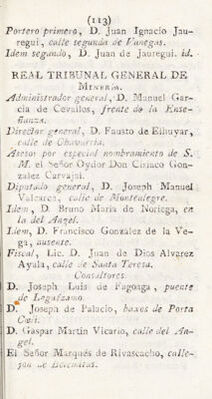 (113)
Portero primero, D. Juan Ignacio Jau-
regui, calle segunda de Vanegas.
Idem segundo, D. Juan de Jauregui. id.
REAL TRIBUNAL GENERAL DE
MINERIA.
Administrador general, D. Manuel Gar-
cia de Cevallos, frente de la Ense-
ñanza.
Director general, D. Fausto de Elhuyar,
calle de Chavarria.
Asesor por especial nombramiento de S.
M. el Señor Oydor Don Ciriaco Gon-
zalez Carvajal.
Diputado general, D. Joseph Manuel
Valcarcel, calle de Montealegre.
Idem, D. Bruno Maria de Noriega, en
la del Angel.
Idem, D. Francisco Gonzalez de la Ve-
ga, ausente.
Fiscal, Lic. D. Juan de Dios Alvarez
Ayala, calle de Santa Teresa.
Consultores.
D. Joseph Luis de Fagoaga, puente
de Leguizamo.
D. Josepa de Palacio, baxos de Porta
Cœli.
D. Gaspar Martin Vicario, calle del An-
gel.
El Señor Marqués de Rivascacho, calle-
jon de